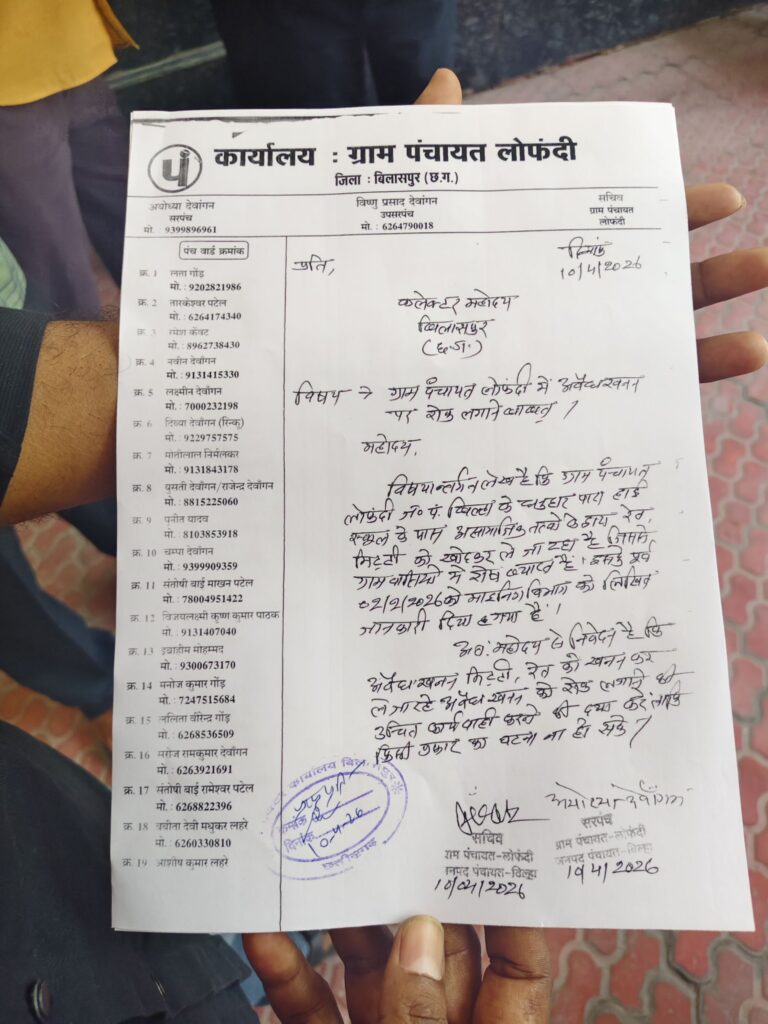 पं
कार्यालय : ग्राम पंचायत लोफंदी
जिला : बिलासपुर (छ.ग.)
अयोध्या देवांगन
सरपंच
मो. : 9399896961
विष्णु प्रसाद देवांगन
उपसरपंच
मो. : 6264790018
सचिव
ग्राम पंचायत
लोफंदी
पंच वार्ड क्रमांक
क्र. 1 लता गोंड़
मो. : 9202821986
क्र. 2 तारकेश्वर पटेल
मो. : 6264174340
क्र. 3 रमेश केंवट
मो. : 8962738430
क्र. 4 नवीन देवाँगन
मो. : 9131415330
क्र. 5 लक्ष्मीन देवांगन
मो. : 7000232198
क्र. 6 दिव्या देवाँगन (रिन्कु)
मो. : 9229757575
क्र. 7 मोतीलाल निर्मलकर
मो. : 9131843178
क्र. 8 युसती देवाँगन/राजेन्द्र देवाँगन
मो. : 8815225060
क्र. 9 पुनीत यादव
मो. : 8103853918
क्र. 10 चम्पा देवाँगन
मो. : 9399909359
क्र. 11 संतोषी बाई माखन पटेल
मो. : 78004951422
क्र. 12 विजयलक्ष्मी कृष्ण कुमार पाठक
मो. : 9131407040
क्र. 13 इब्राहीम मोहम्मद
मो. : 9300673170
क्र. 14 मनोज कुमार गोंड़
मो. : 7247515684
क्र. 15 ललिता वीरेन्द्र गोंड़
मो. : 6268536509
क्र. 16 सरोज रामकुमार देवाँगन
मो. : 6263921691
क्र. 17 संतोषी बाई रामेश्वर पटेल
मो. : 6268822396
क्र. 18 बबीता देवी मधुकर लहरे
मो. : 6260330810
क्र. 19 आशीष कुमार लहरे
दिनांक
10/4/2026
प्रति,
कलेक्टर महोदय
बिलासपुर
(छ.ग.)
विषय → ग्राम पंचायत लोफंदी में अवैध खनन
पर रोक लगाने बाबत् /
महोदय,
विषयान्तर्गत लेख है कि ग्राम पंचायत
लोफंदी ज० पं. बिल्हा के पारा हाई
स्कूल के पास असामाजिक तत्वों के द्वारा रेत,
मिट्टी को खोदकर ले जा रहा है जिससे
ग्राम वासियों में रोष व्याप्त है। इसके पूर्व
02/2/2026 को माइनिंग विभाग को लिखित
जानकारी दिया गया है।
अतः महोदय से निवेदन है कि
अवैध खनन मिट्टी, रेत को खनन कर
ले जा रहे अवैध खनन को रोक लगाने की
उचित कार्यवाही करने की दया करें ताकि
किसी प्रकार का घटना ना हो सके /
कार्यालय
क्रमांक
दिनांक 10-4-26
छत्तीसगढ़
सचिव
ग्राम पंचायत-लोफंदी
जनपद पंचायत-बिल्हा
10/04/2026
अयोध्या देवाँगन
सरपंच
ग्राम पंचायत-लोफंदी
जनपद पंचायत-बिल्हा
10/4/2026